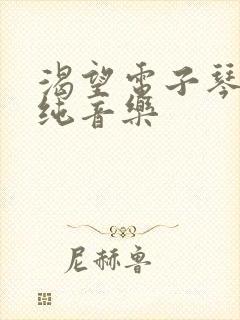 渴望電子琴
纯音樂
尼赫鲁